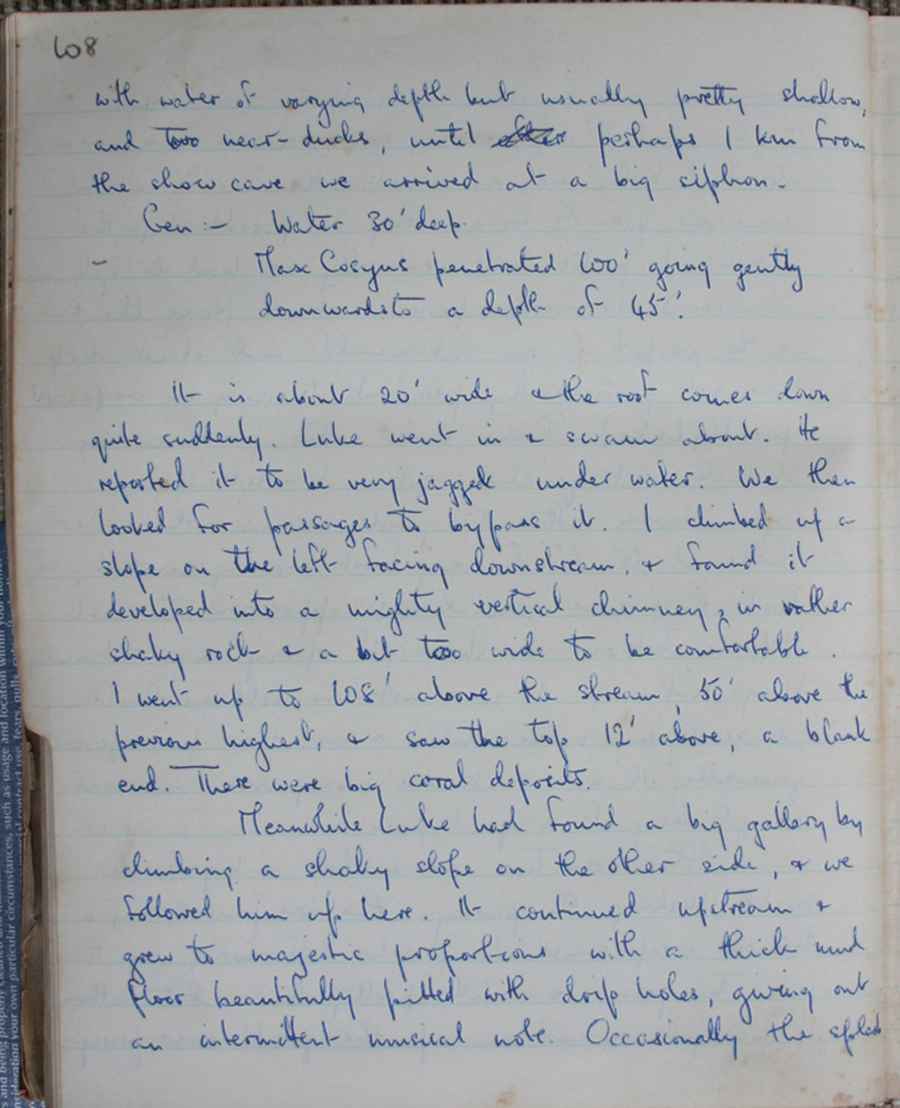 108
with water of varying depth but usually pretty shallow,
and two near-ducks, until perhaps 1 km from
the show cave we arrived at a big siphon.
Gen :- Water 30' deep.
- Max Cosyns penetrated 100' going gently
downwards to a depth of 45'.
It is about 20' wide & the roof comes down
quite suddenly. Luke went in & swam about. He
reported it to be very jagged under water. We then
looked for passages to bypass it. I climbed up a
slope on the left facing downstream, & found it
developed into a mighty vertical chimney, in rather
shaky rock & a bit too wide to be comfortable.
I went up to 108' above the stream, 50' above the
previous highest, & saw the top 12' above, a blank
end. There were big coral deposits.
Meanwhile Luke had found a big gallery by
climbing a shaky slope on the other side, & we
followed him up here. It continued upstream &
grew to majestic proportions with a thick mud
floor beautifully pitted with drip holes, giving out
an intermittent musical note. Occasionally the